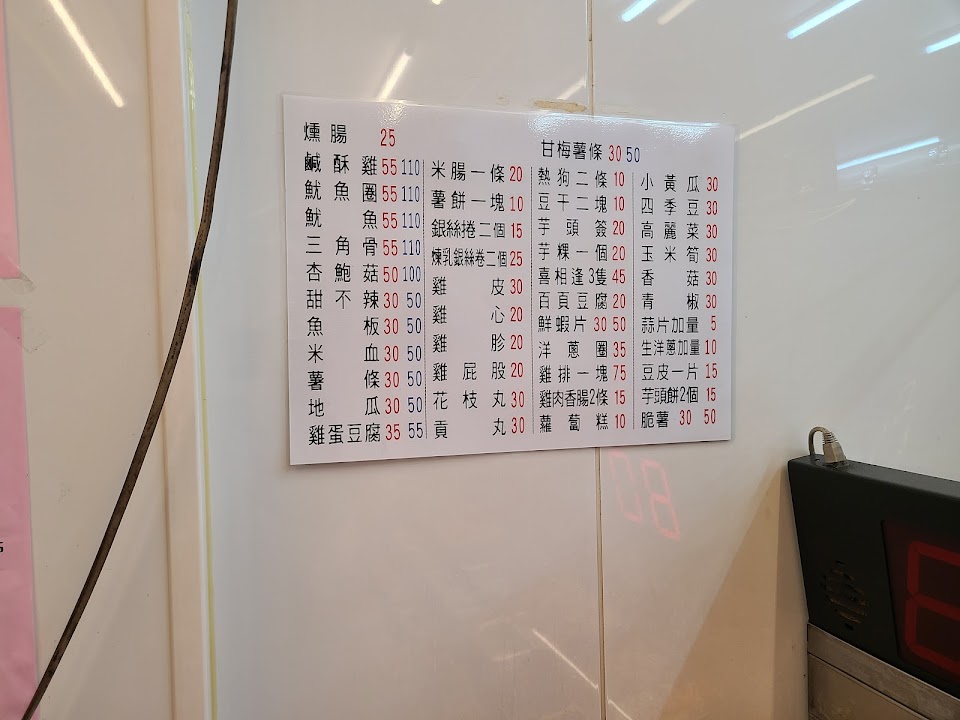 燻腸 25
甘梅薯條 30 50
鹹酥雞 55 110
魷魚圈 55 110
魷魚 55 110
三角骨 55 110
杏鮑菇 50 100
甜不辣 30 50
魚板 30 50
米血 30 50
薯條 30 50
地瓜 30 50
雞蛋豆腐 35 55
米腸一條 20
薯餅一塊 10
銀絲捲二個 15
煉乳銀絲卷二個 25
雞皮 30
雞心 20
雞胗 20
雞屁股 20
花枝丸 30
貢丸 30
熱狗二條 10
豆干二塊 10
芋頭簽 20
芋粿一個 20
喜相逢3隻 45
百頁豆腐 20
鮮蝦片 30 50
洋蔥圈 35
雞排一塊 75
雞肉香腸2條 15
蘿蔔糕 10
小黃瓜 30
四季豆 30
高麗菜 30
玉米筍 30
香菇 30
青椒 30
蒜片加量 5
生洋蔥加量 10
豆皮一片 15
芋頭餅2個 15
脆薯 30 50
08